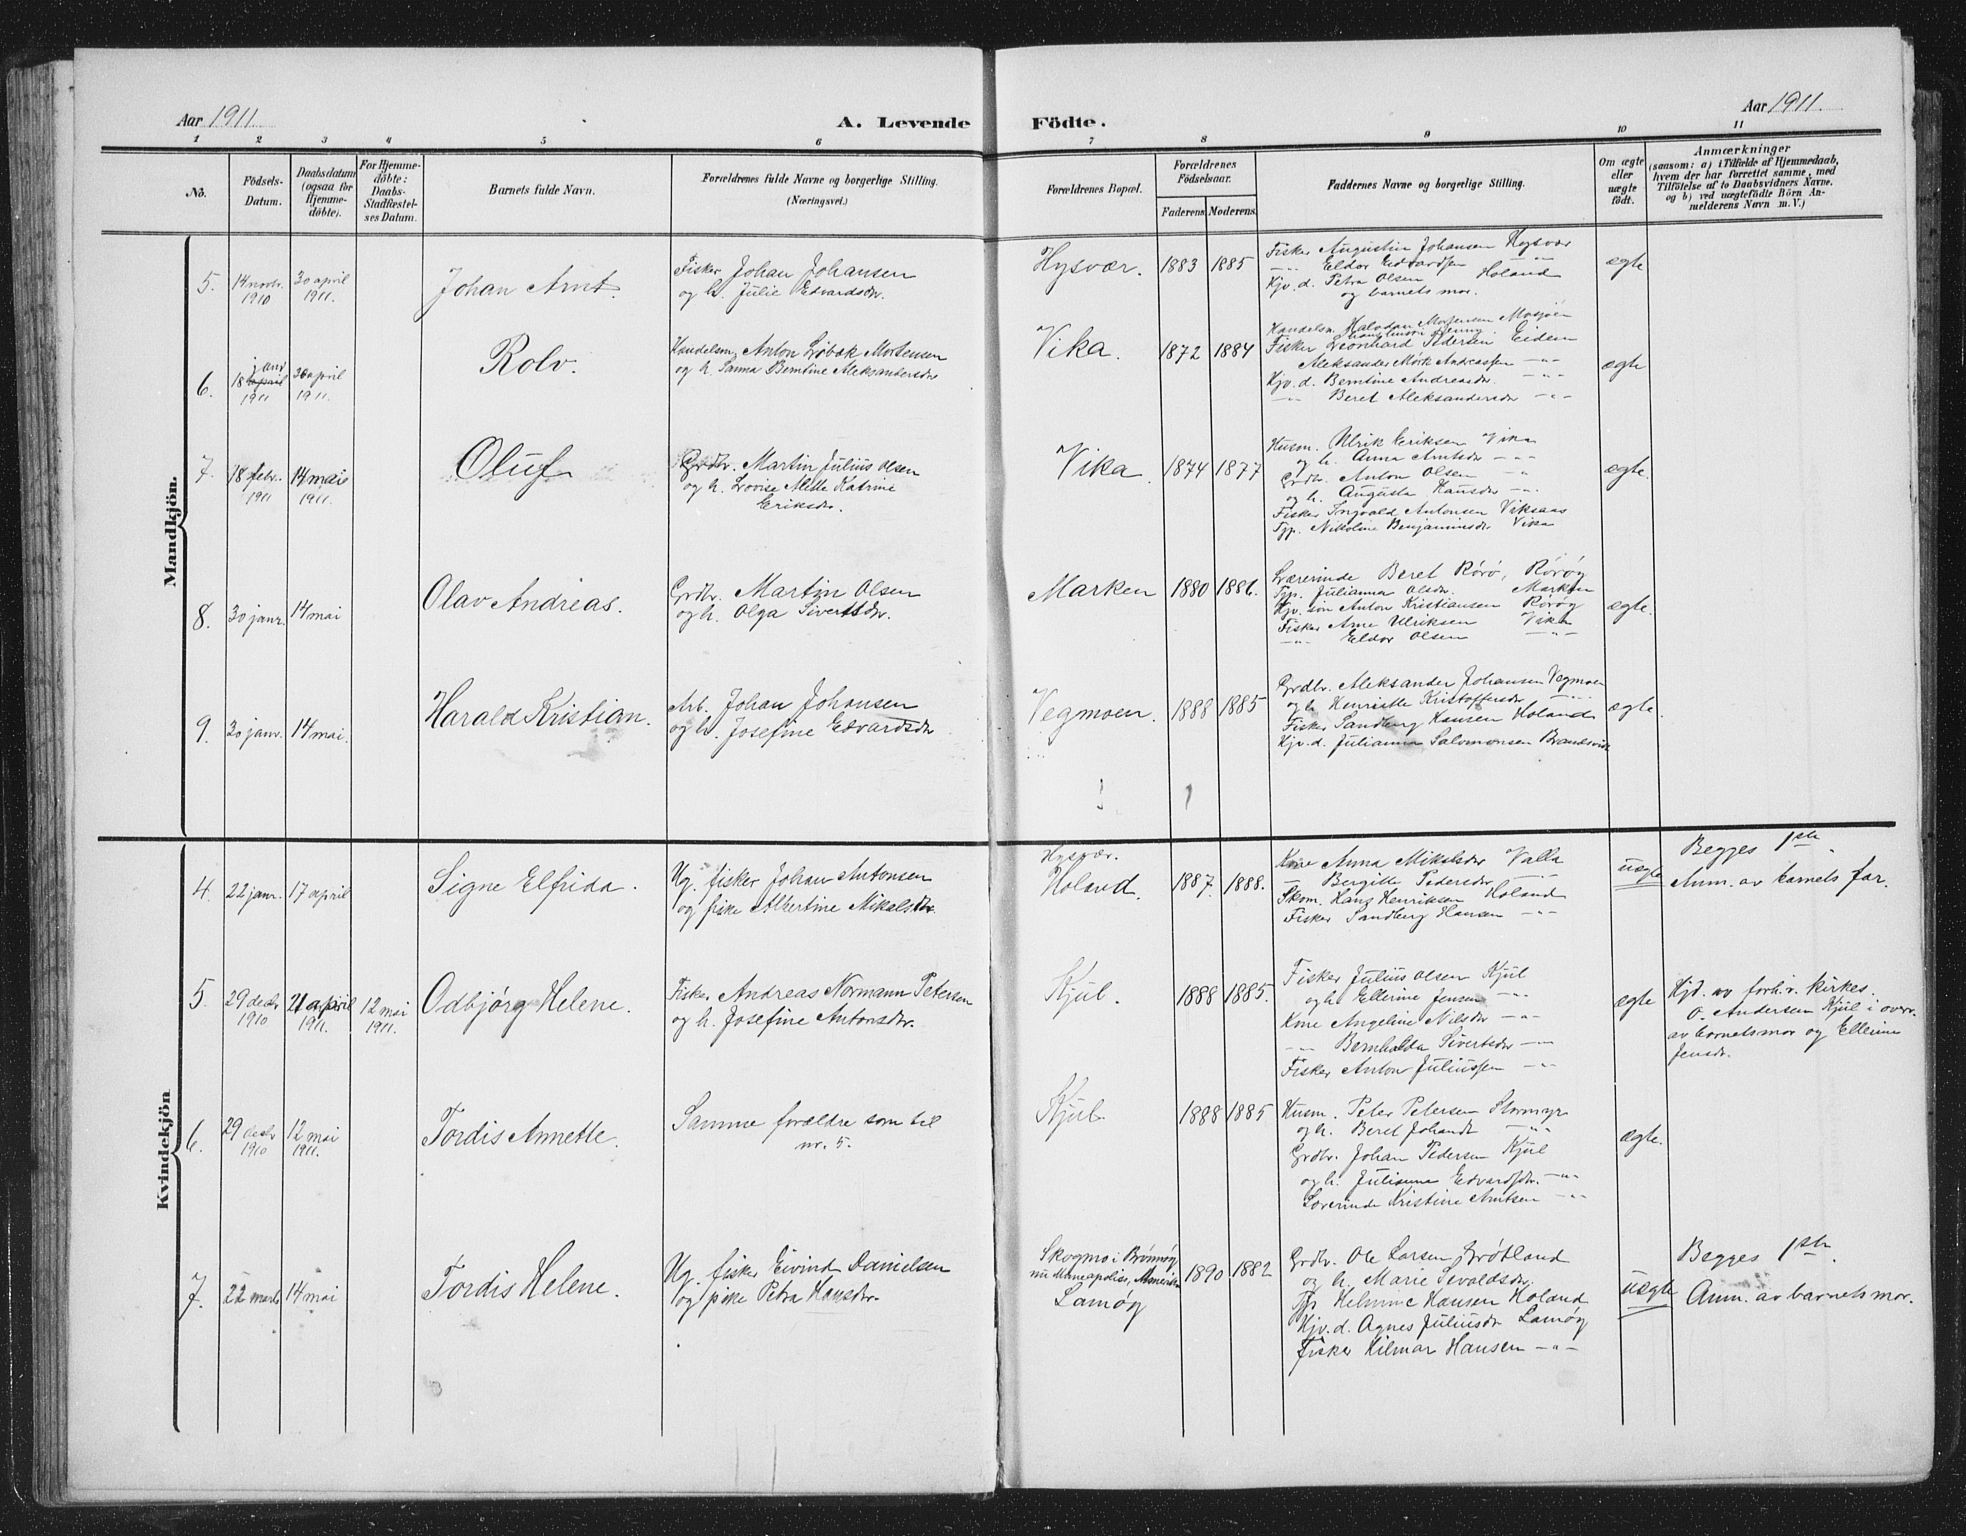 Aar 1911. A. Levende Födte. Aar 1911.
1 2 3 4 5 6 7 8 9 10 11
No.
Födsels-Datum.
Daabsdatum (ogsaa for Hjemme-döbte).
For Hjemme-döbte: Daabs-Stadfæstel-ses Datum.
Barnets fulde Navn.
Forældrenes fulde Navne og borgerlige Stilling. (Næringsvei.)
Forældrenes Bopæl.
Forældrenes Födselsaar.
Faderens. Moderens.
Faddernes Navne og borgerlige Stilling.
Om ægte eller uægte födt.
Anmærkninger
(saasom: a) i Tilfælde af Hjemmedaab,
hvem der har forrettet samme, med
Tilföielse af to Daabsvidners Navne.
og b) ved uægtefödte Börn An-
melderens Navn m. V.)
Mandkjön.
5. 14 novbr. 1910 30 april 1911. Johan Arnt.
Fisker Johan Johansen
og h. Julie Edvardsdr.
Hysvær. 1883 1885
Fisker Augustin Johansen Hysvær
-"- Eldor Edvardsen
Kjv. d. Petra Olsen Holand
og barnets mor.
ægte
6. 18 april janr 1911 30 april 1911. Rolv.
Handelsm. Anton Løbak Mortensen
og h. Sanna Berntine Aleksandersdr
Vika. 1872 1884
Handelsm. Halvdan Mortensen Mosjøen
Fisker Leonhard Pedersen Eidem
Aleksander Mørk Andreassen -"-
Kjv. d. Berntine Andreasdr. -"-
-"- Beret Aleksandersdr -"-
ægte
7. 18 febr. 1911 14 mai 1911. Oluf
Grdbr. Martin Julius Olsen
og h. Lovise Mette Katrine
Eriksdr.
Vika 1874 1877
Husm. Ulrik Eriksen Vika
og h. Anna Arntsdr -"-
Grdbr. Anton Olsen -"-
og h. Augusta Hansdr -"-
Fisker Ingvald Antonsen Viksaas
Tjp. Nikoline Benjaminsdr Vika
ægte.
8. 30 janr. 14 mai Olav Andreas.
Grdbr. Martin Olsen
og h. Olga Sivertsdr.
Marken 1880 1886.
Lærerinde Beret Rørø, Rørøy
Tjp. Julianna Olsdr. Marken
Kjv. søn Anton Kristiansen Rørøy
Fisker Arne Ulriksen Vika
-"- Eldor Olsen -"-
ægte.
9. 30 janr. 14 mai. Harald Kristian.
Arb. Johan Johansen
og h. Josefine Edvardsdr
Vegmoen. 1888 1885
Grdbr. Aleksander Johansen Vegmoen
og h. Henriette Kristoffersdr -"-
Fisker Sandberg Hansen Holand
Kjv. d. Julianna Salomonsen
ægte.
Kvindekjön
4. 22 janr. 17 april Signe Elfrida.
Ug. fisker Johan Antonsen
og pike Albertine Mikalsdr.
Hysvær.
Holand. 1887. 1888.
Kone Anna Mikalsdr Valla
-"- Bergitte Pedersdr
Skom. Hans Henriksen Holand
Fisker Sandberg Hansen -"-
uægte
Begges 1ste.
Anm. av barnets far.
5. 29 decbr 1910 21 april 1911. 12 mai 1911. Odbjørg Helene.
Fisker Andreas Normann Petersen
og h. Josefine Antonsdr.
Kjul. 1888 1885.
Fisker Julius Olsen Kjul
og h. Ellerine Jensen -"-
Kone Angeline Nilsdr -"-
-"- Bernholda Sivertsdr -"-
Fisker Anton Juliussen -"-
ægte
Hjd. av forh.v. kirkes.
O. Andersen Kjul i overv.
av barnets mor og Ellerine
Jensdr.
6. 29 decbr 1910 12 mai 1911. Tordis Annette.
Samme forældre som til
nr. 5.
Kjul 1888 1885
Husm. Peter Petersen Stormyr
og h. Beret Johandr -"-
Grdbr. Johan Pedersen Kjul
og h. Julianna Edvardsdr. -"-
Lærerinde Kristine Arntsen -"-
ægte.
7. 22 marts 14 mai Tordis Helene.
Ug. fisker Eivind Danielsen
og pike Petra Hansdr.
Skogmo i Brønnøy
nu Minneapolis, Amerika
Lamøy 1890 1882
Grdbr. Ole Larsen Grøtland
og h. Marie Sevaldsdr.
Tjp. Helmine Hansen Holand
Kjv. d. Agnes Juliusdr Lamøy
Fisker Hilmar Hansen -"-
uægte
Begges 1ste.
Anm. av barnets mor.